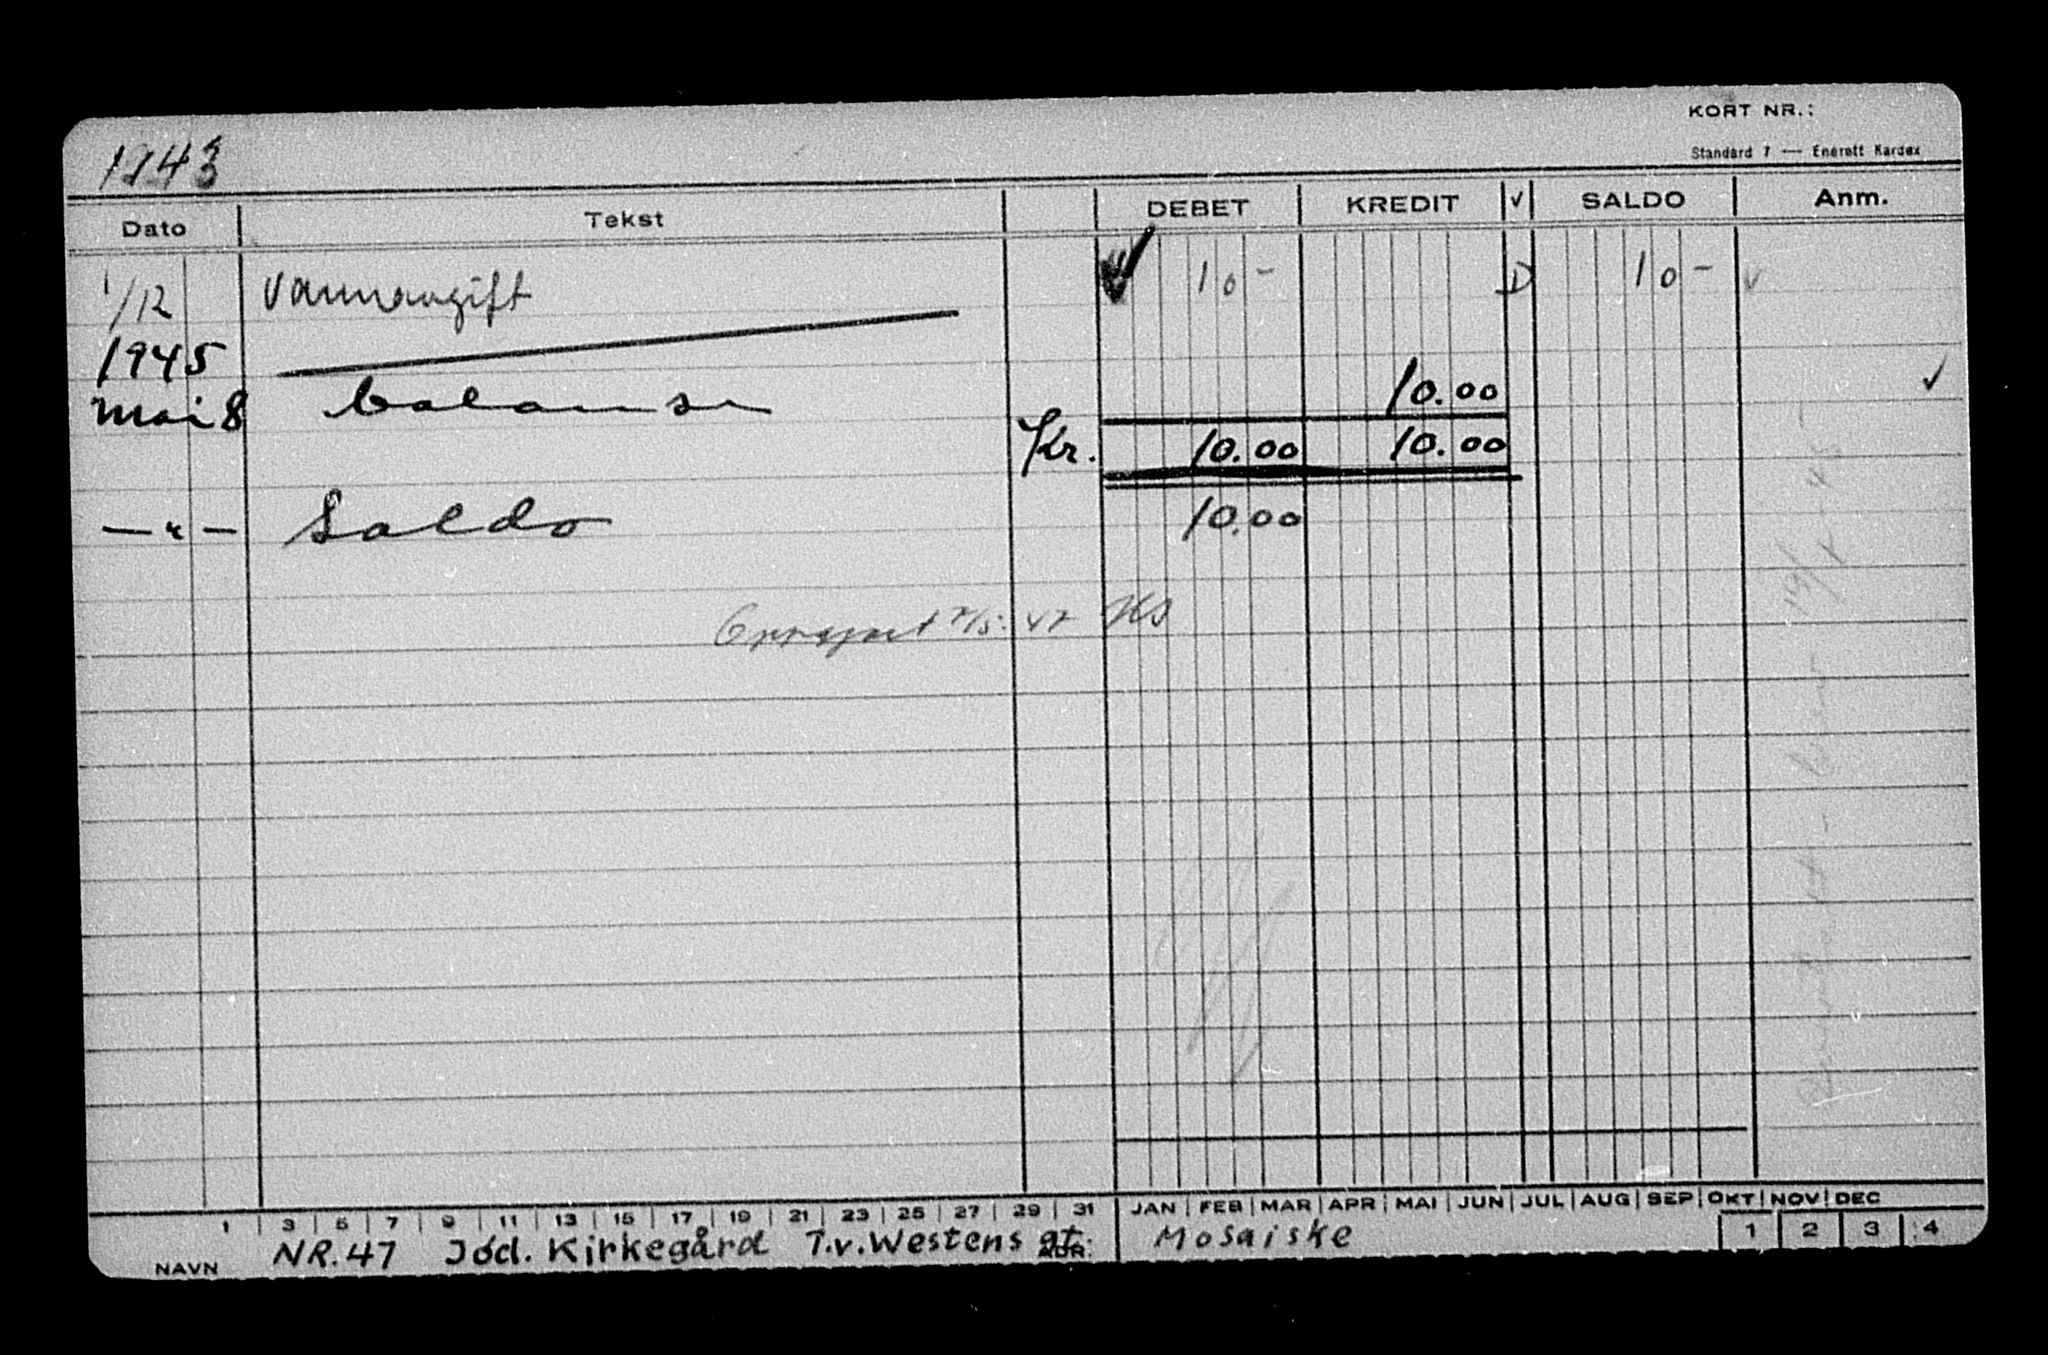 KORT NR.:
Standard 7 — Enerett Kardex
1943
Dato Tekst DEBET KREDIT √ SALDO Anm.
1/12 Vannavgift 10- D 10- √
1945
Mai 8 balanse 10.00 √
Kr. 10.00 10.00
—"— Saldo 10.00
Oppgjort
1 3 5 7 9 11 13 15 17 19 21 23 25 27 29 31 JAN FEB MAR APR MAI JUN JUL AUG SEP OKT NOV DEC
NAVN NR. 47 Jød. Kirkegård T.v. Westens gt. ADR. Mosaiske 1 2 3 4